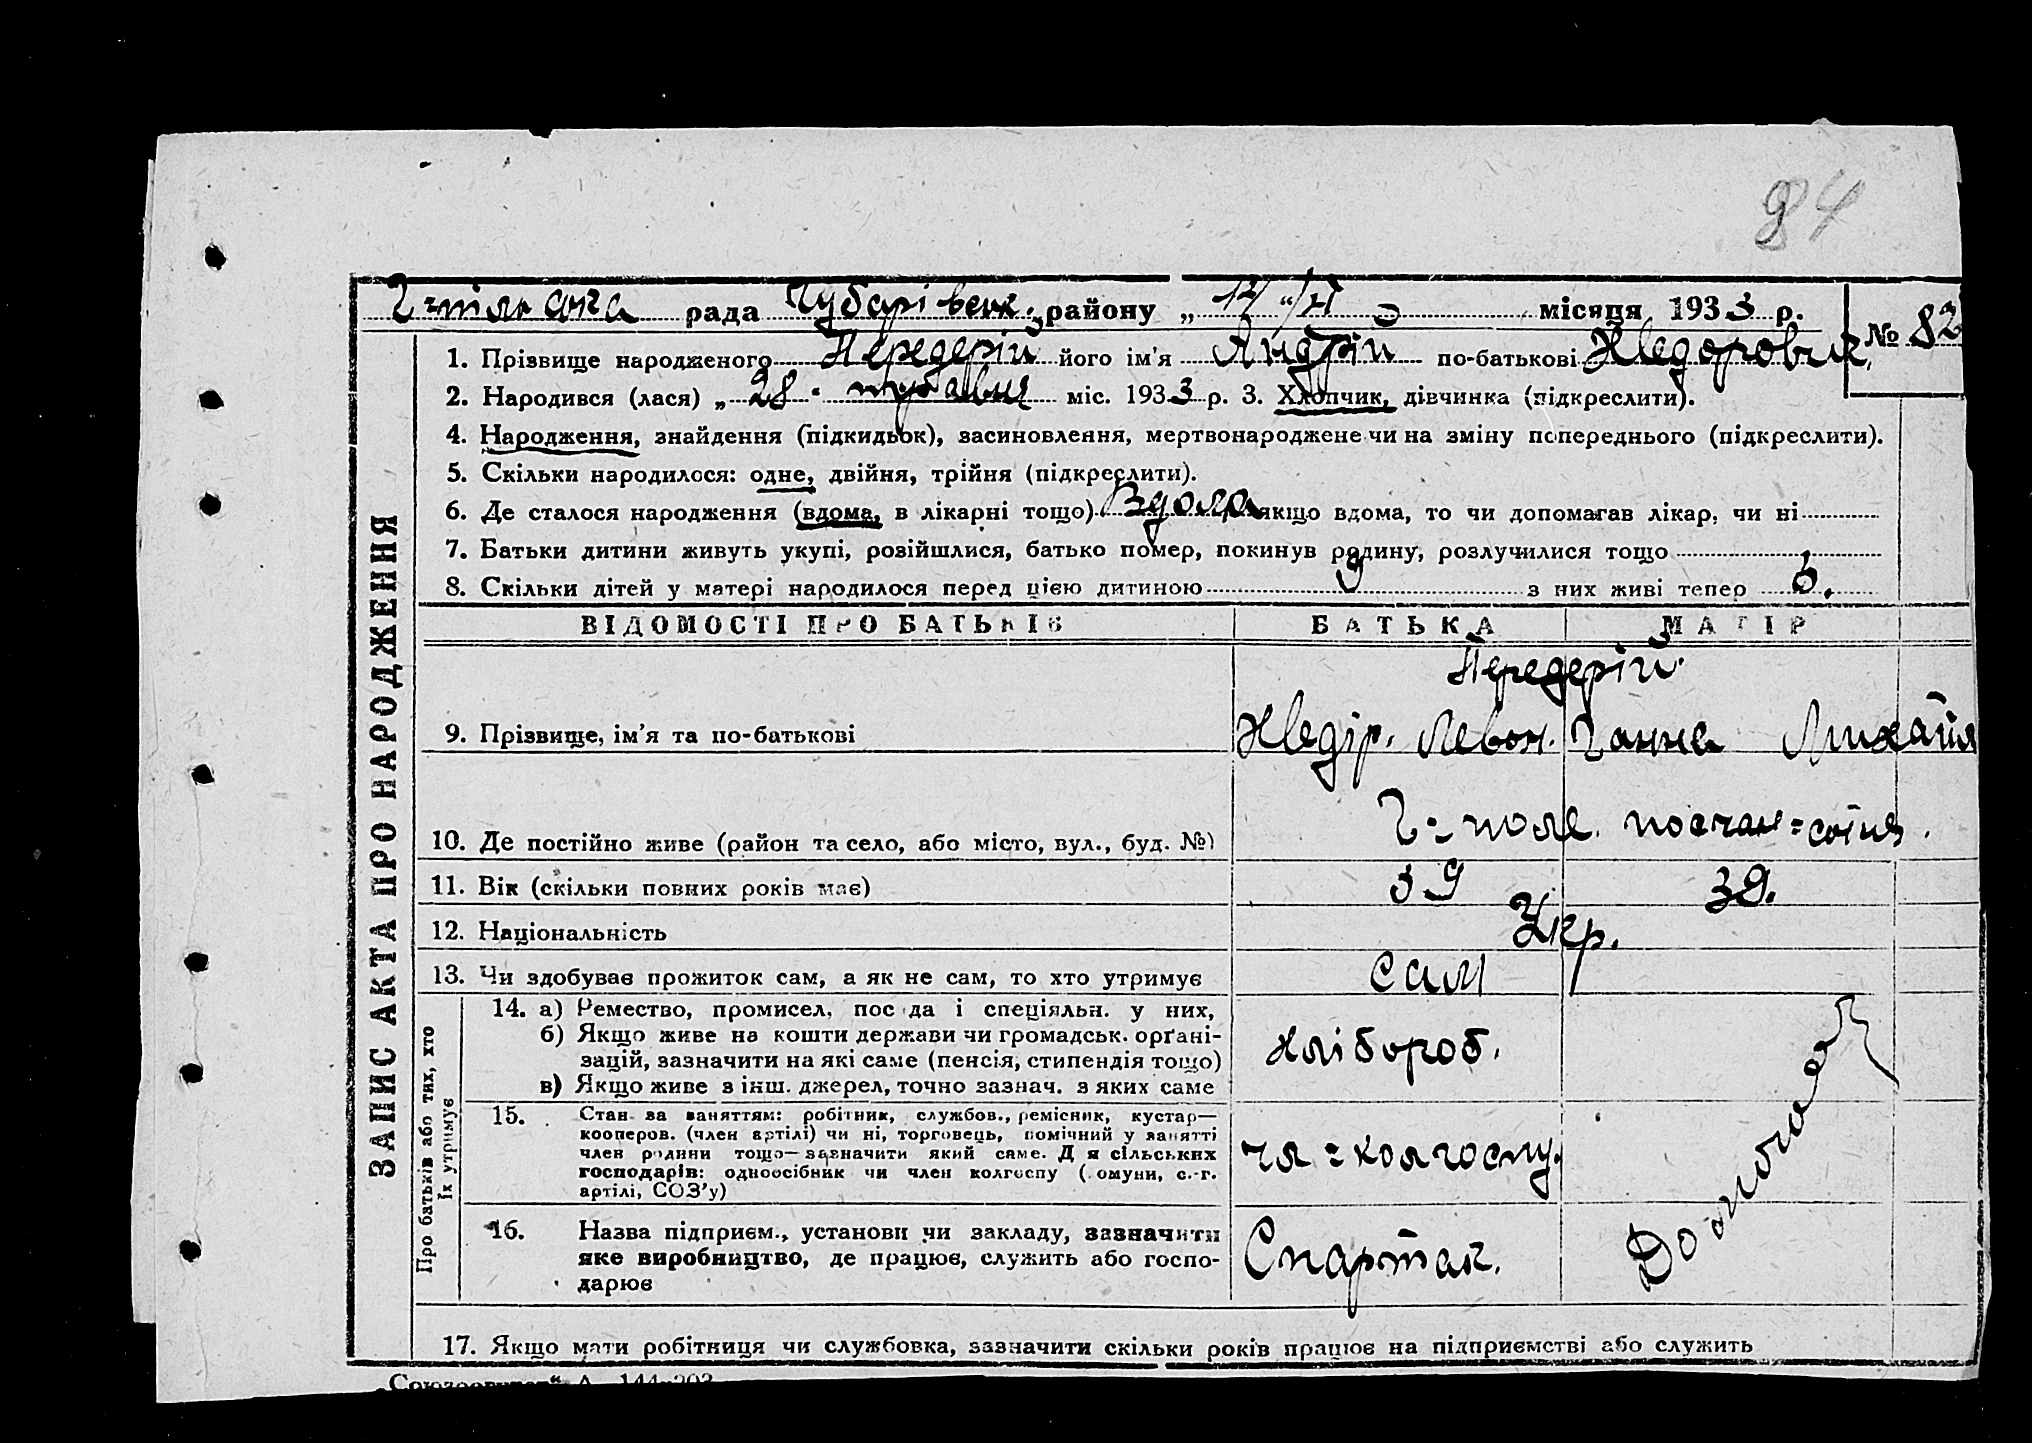 84
Г=пільська рада Чубарівськ. району „12/VI місяця 1933 р. № 82
1. Прізвище народженого Передерій його ім'я Андрій по-батькові Хведорович,
2. Народився (лася) „28" травня міс. 1933 р. 3. Хлопчик, дівчинка (підкреслити).
4. Народження, знайдення (підкидьок), засиновлення, мертвонароджене чи на зміну попереднього (підкреслити).
5. Скільки народилося: одне, двійня, трійня (підкреслити).
6. Де сталося народження (вдома, в лікарні тощо) Вдома якщо вдома, то чи допомагав лікар, чи ні
7. Батьки дитини живуть укупі, розійшлися, батько помер, покинув родину, розлучилися тощо
8. Скільки дітей у матері народилося перед цією дитиною 9 з них живі тепер 6.
ВІДОМОСТІ ПРО БАТЬКІВ БАТЬКА МАТІР
Передерій
9. Прізвище, ім'я та по-батькові Хведір. Левон. Ганна Михайл
10. Де постійно живе (район та село, або місто, вул., буд. №) Г=поле. посчан=сотня.
11. Вік (скільки повних років має) 39 39.
12. Національність Укр.
13. Чи здобуває прожиток сам, а як не сам, то хто утримує сам
ЗАПИС АКТА ПРО НАРОДЖЕННЯ
Про батьків або тих, хто
їх утримує
14. а) Ремество, промисел, посада і спеціяльн. у них,
б) Якщо живе на кошти держави чи громадськ. орґані-
зацій, зазначити на які саме (пенсія, стипендія тощо)
в) Якщо живе з інш. джерел, точно зазнач. з яких саме
хлібороб.
15. Стан за заняттям: робітник, службов., ремісник, кустар—
кооперов. (член артілі) чи ні, торговець, помічний у занятті
член родини тощо—зазначити який саме. Для сільських
господарів: одноосібник чи член колгоспу (комуни, с.-г.
артілі, СОЗ'у)
чл=колгоспу.
16. Назва підприєм., установи чи закладу, зазначити
яке виробництво, де працює, служить або госпо-
дарює
Спартак.
17. Якщо мати робітниця чи службовка, зазначити скільки років працює на підприємстві або служить